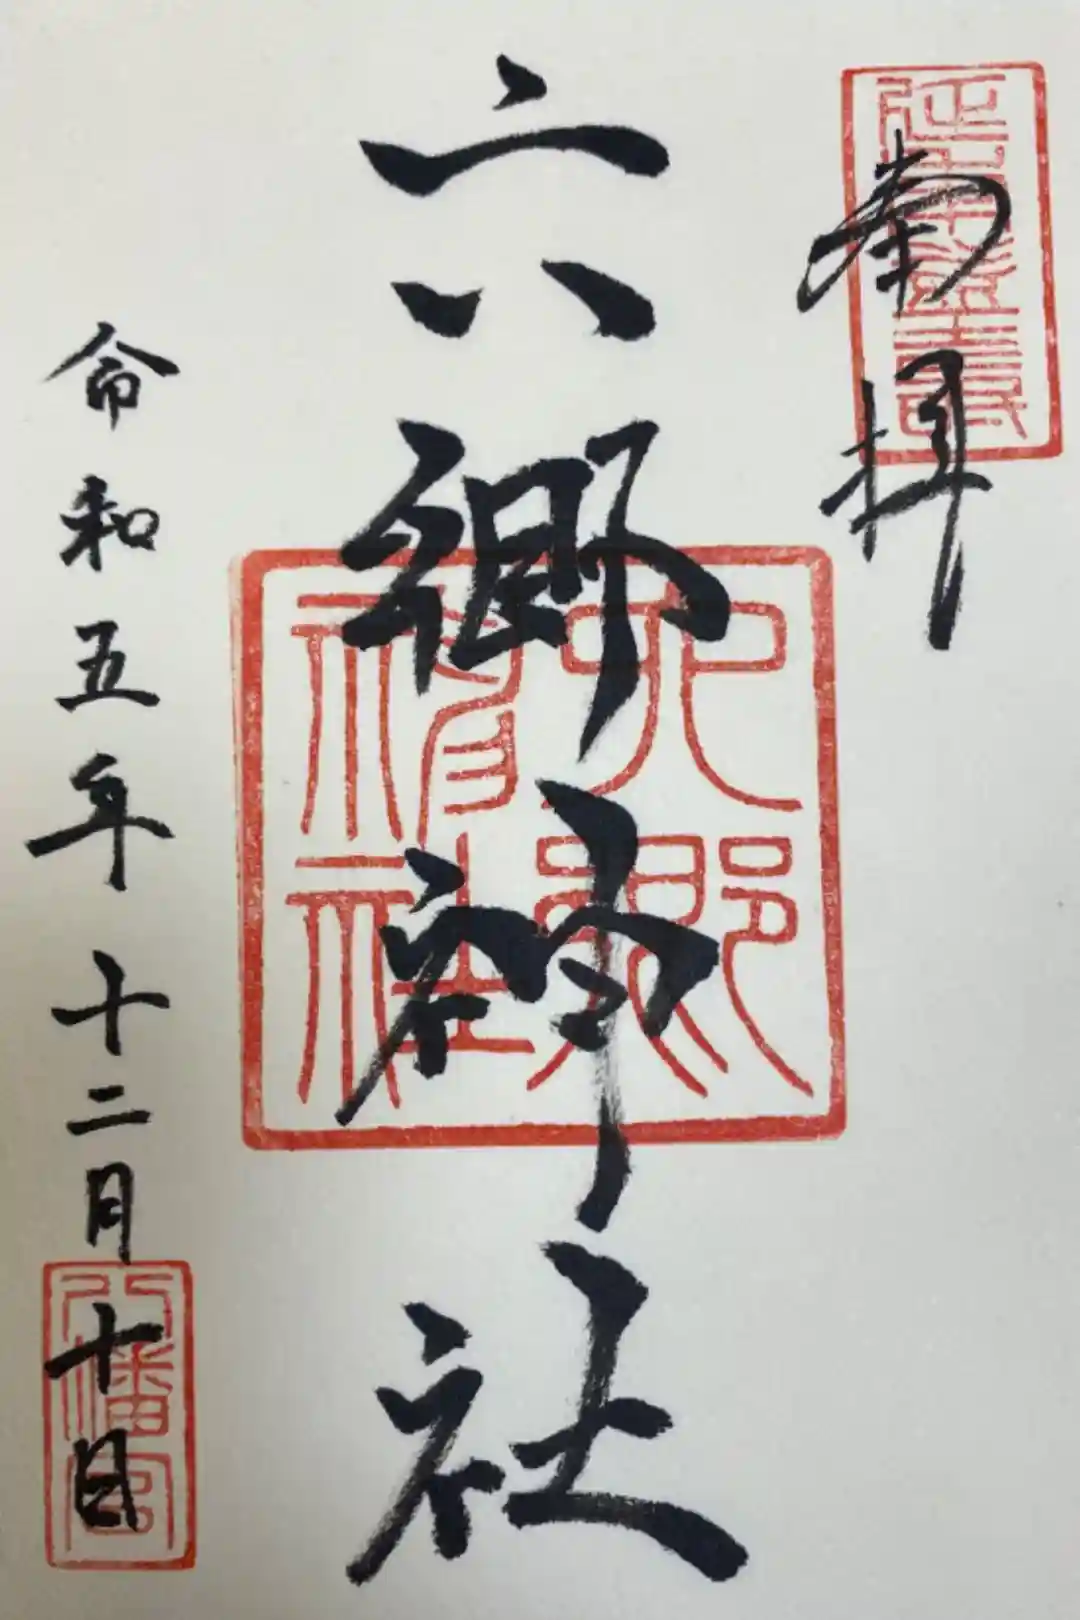 奉拝
六郷神社
六郷
神社
令和五年十二月十日
八幡宮